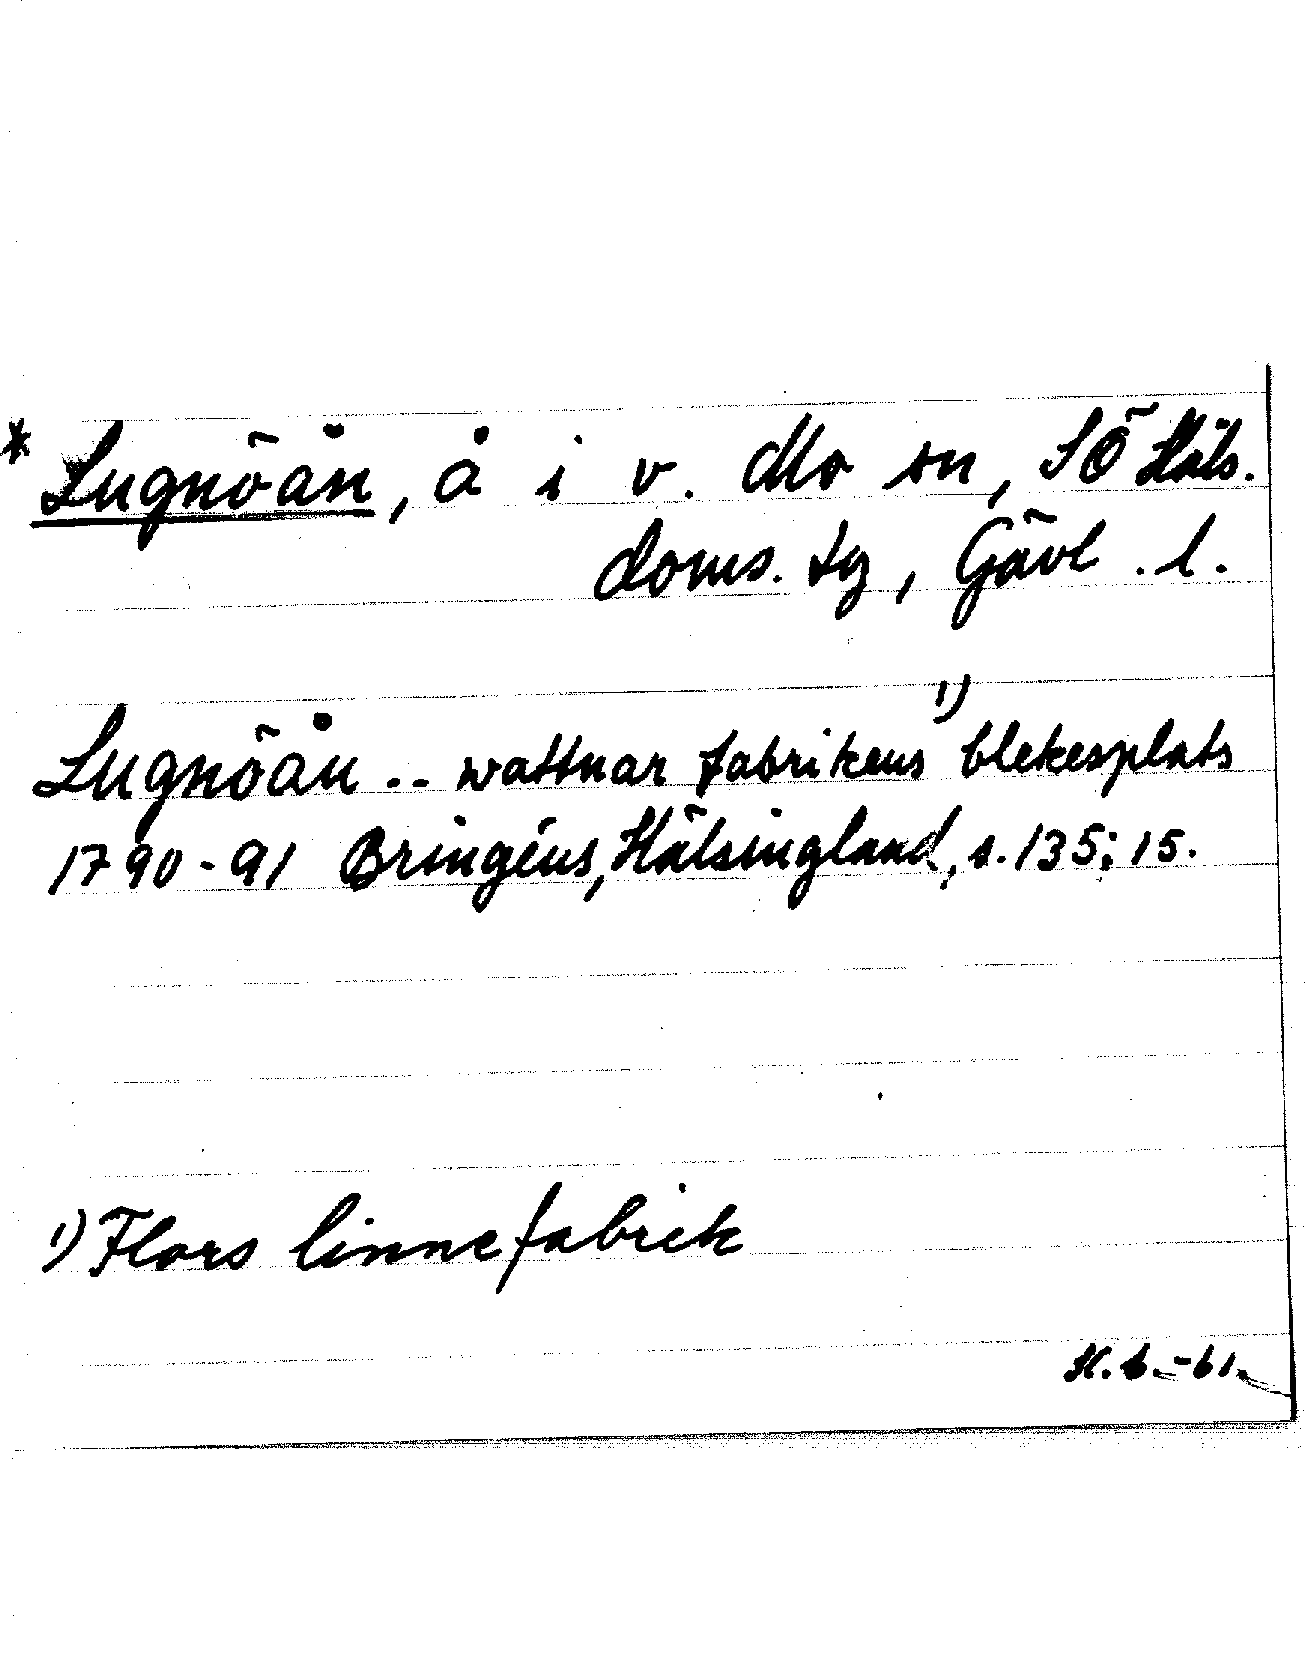 * Lugnöån, å i v. Mo sn, SÖ Häls.
doms. tg, Gävl. l.
Lugnöån .. wattnar fabrikens 1) blekesplats
1790-91 Bringéus, Hälsingland, s. 135; 15.
1) Flors linnefabrik
-61.